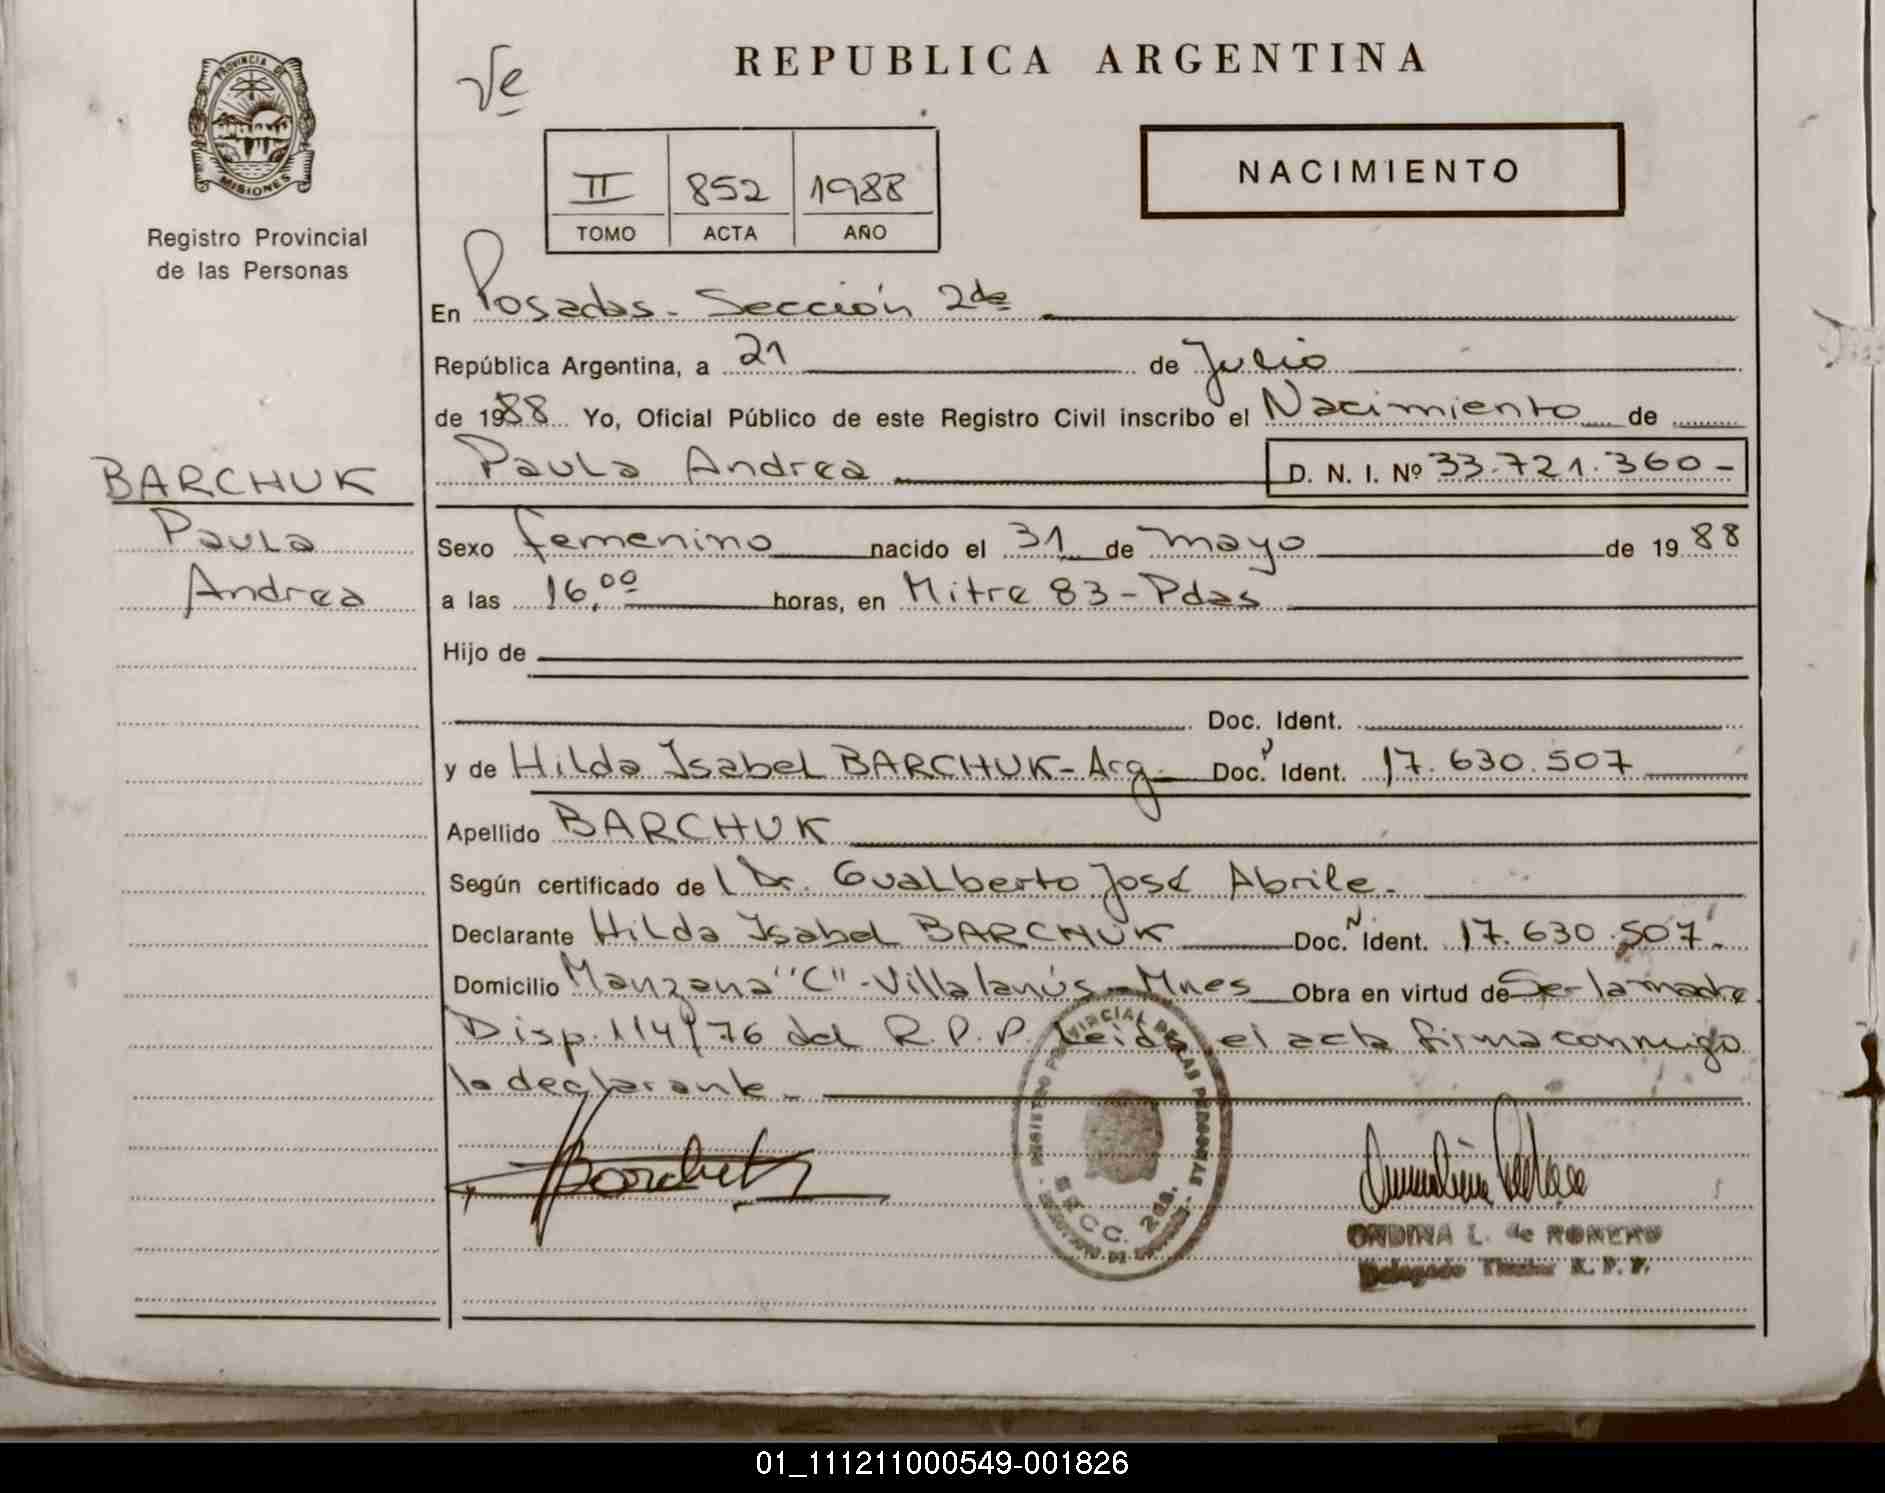 REPUBLICA ARGENTINA
PROVINCIA DE
MISIONES
Registro Provincial
de las Personas
Ve
II 852 1988
TOMO ACTA AÑO
NACIMIENTO
En Posadas - Sección 2da
República Argentina, a 21 de Julio
de 1988 Yo, Oficial Público de este Registro Civil inscribo el Nacimiento de
Paula Andrea D. N. I. Nº 33.721.360-
BARCHUK
Paula
Andrea
Sexo femenino nacido el 31 de mayo de 1988
a las 16,00 horas, en Mitre 83 - Pdas
Hijo de
Doc. Ident.
y de Hilda Isabel BARCHUK - Arg. Doc. Ident. 17.630.507
Apellido BARCHUK
Según certificado de l Dr. Gualberto José Abrile.
Declarante Hilda Isabel BARCHUK Doc. Ident. 17.630.507.
Domicilio Manzana "C" - Villalanús - Mnes Obra en virtud de Ser la madre
Disp. 114/76 del R. P. P. Leida el acta firma conmigo
la declarante.
REGISTRO PROVINCIAL DE LAS PERSONAS
SECC. 2da.
ONDINA L. de ROMERO
Delegado Titular R. P. P.
01_111211000549-001826